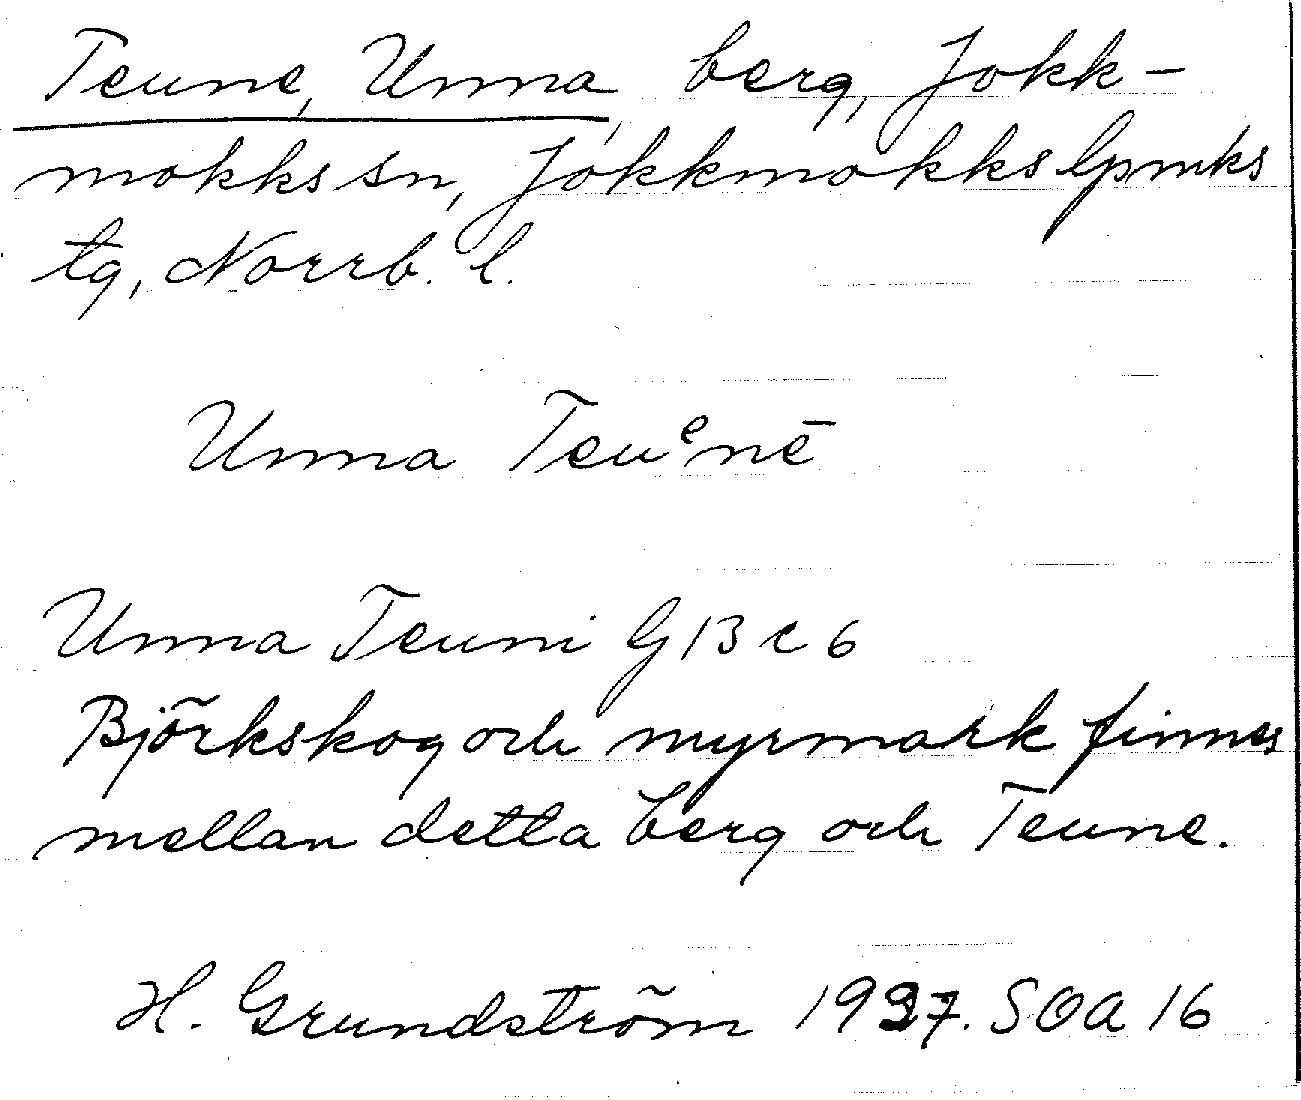 Teune, Unna, berg, Jokk-
mokks sn, Jokkmokks lpmks
tg, Norrb. l.
Unna Teuᵉnē
Unna Teuni G13c6
Björkskog och myrmark finnes
mellan detta berg och Teune.
H. Grundström 1937. SOA 16